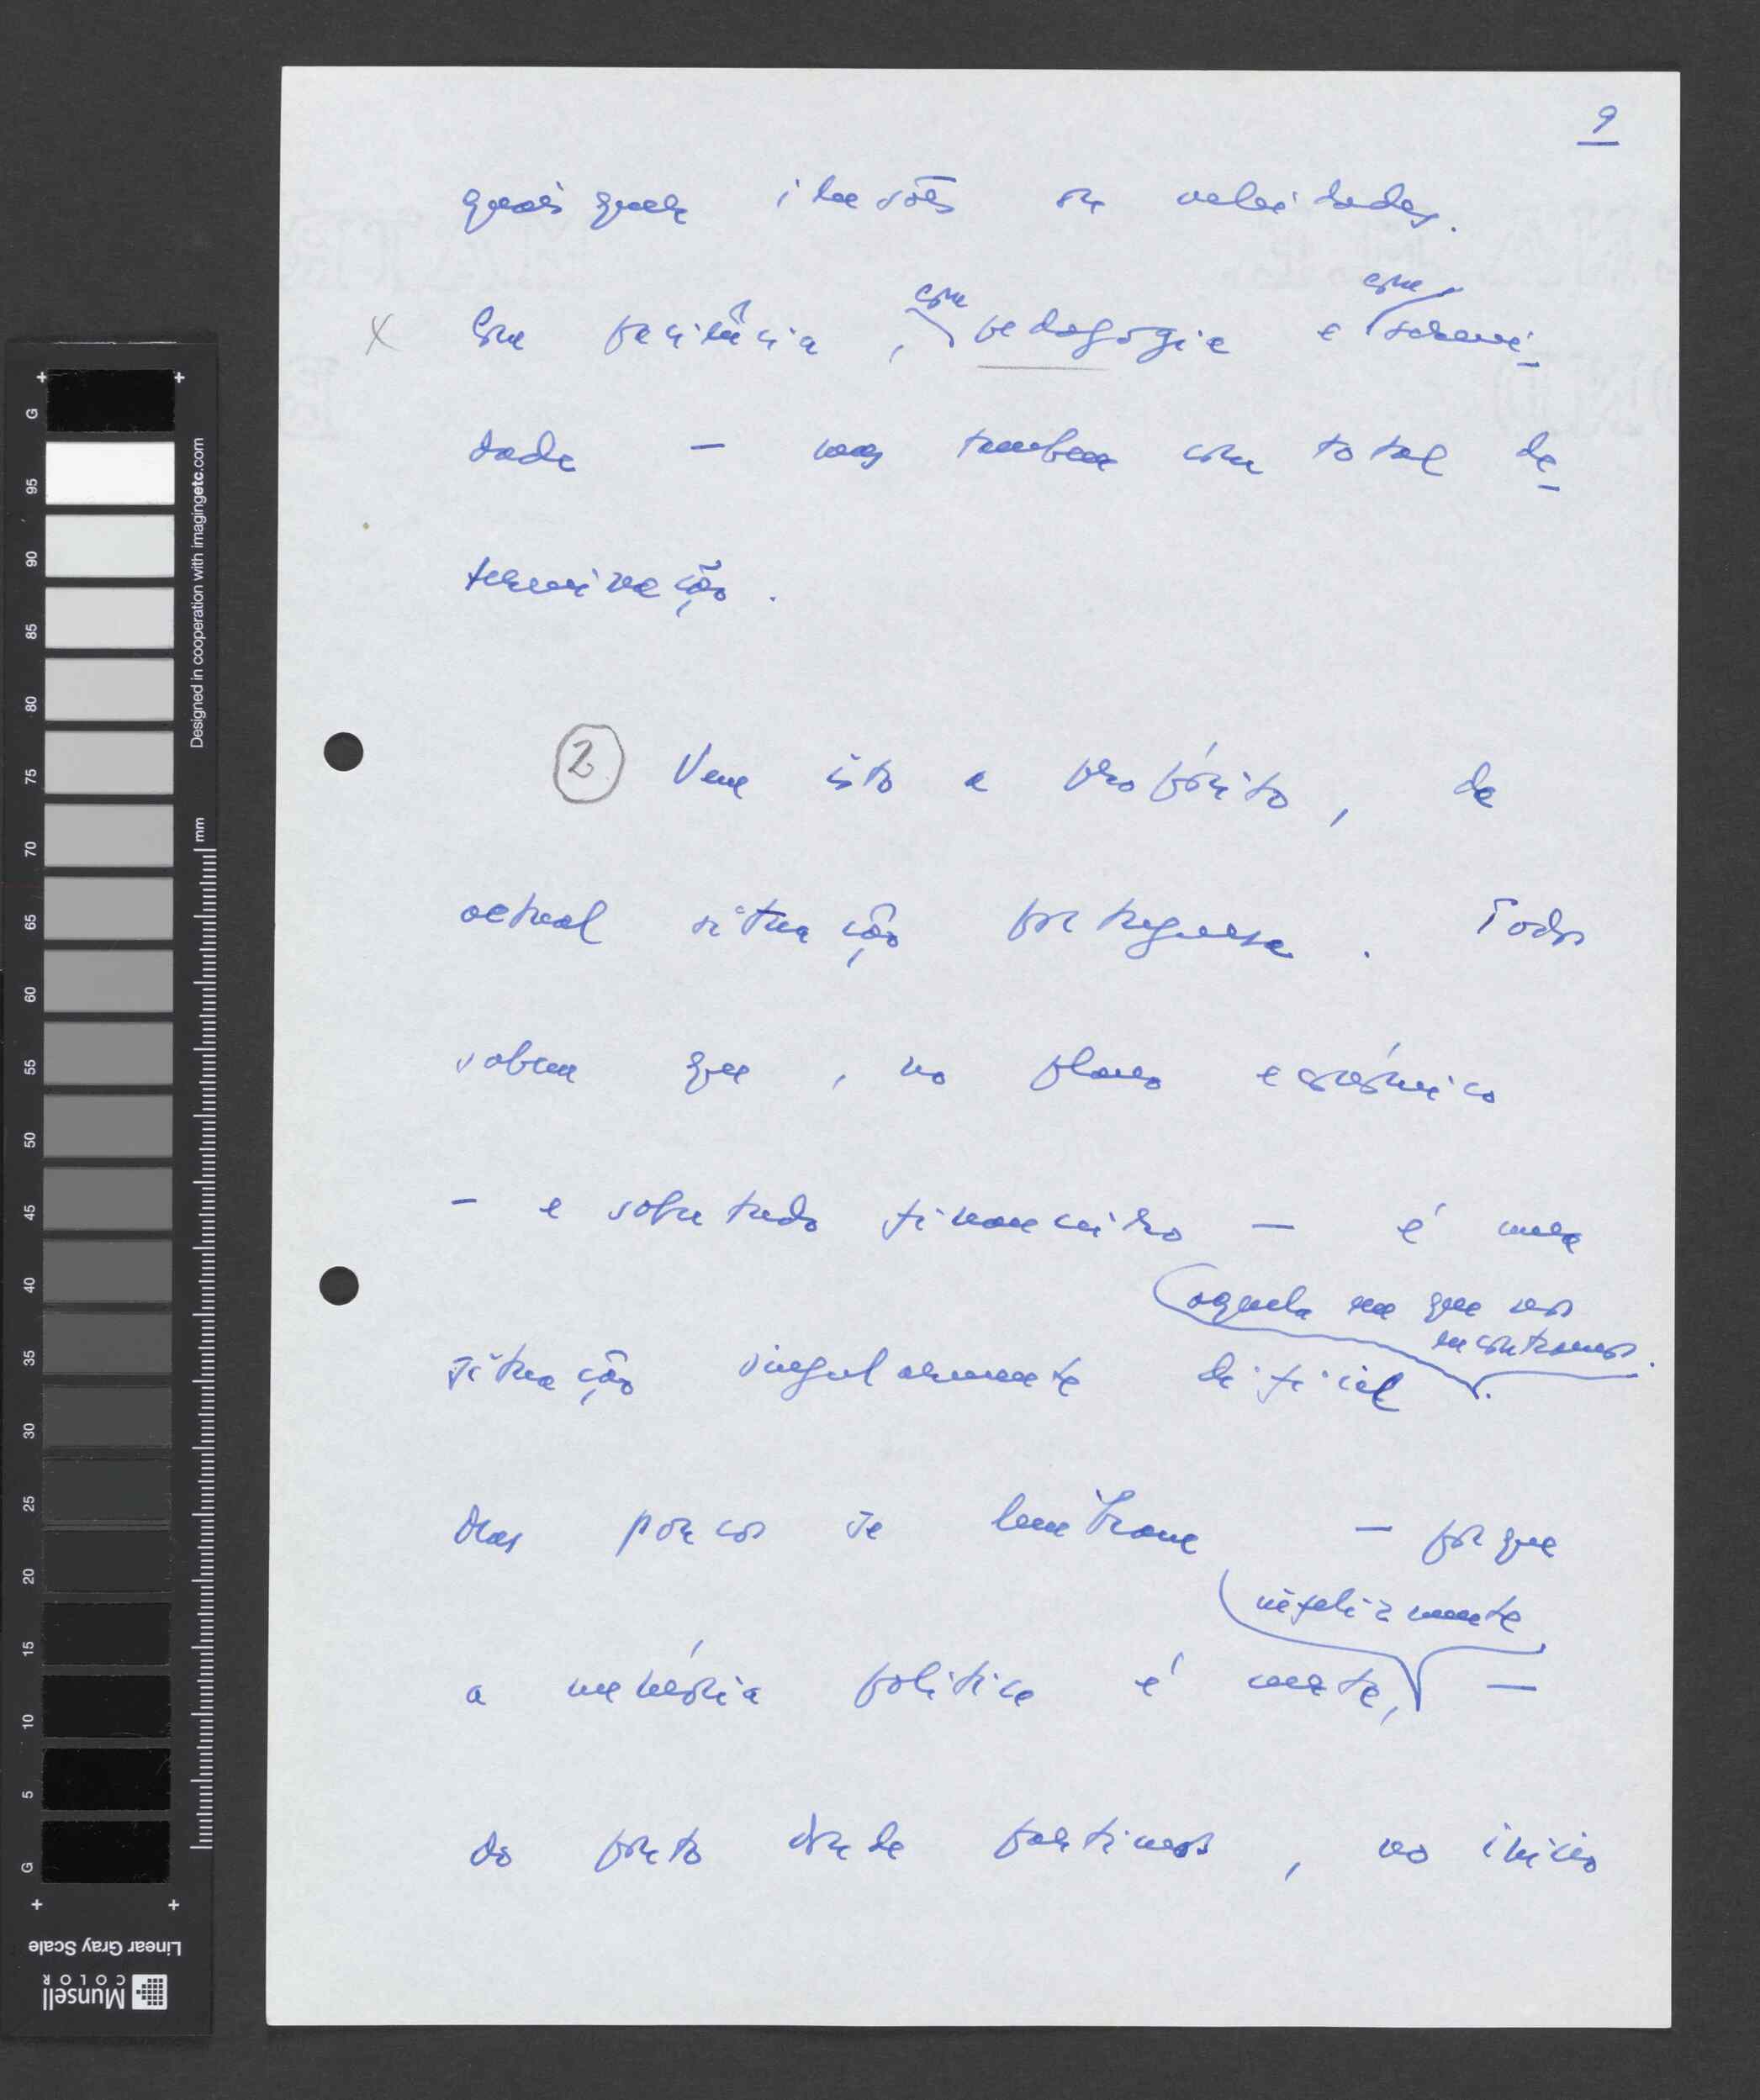 9
quaisquer ilusões ou veleidades.
com com
x Com paciência, pedagogia e sereni-
dade — mas tambem com total de-
terminação.
2 Vem isto a propósito, da
actual situação portuguesa. Todos
sabem que, no plano económico
— e sobretudo financeiro — é uma
aquela em que nos
encontramos.
situação singularmente dificil
Mas poucos se lembram — porque
infelizmente
a memória politica é curta, —
do ponto donde partimos, no inicio
G 95 90 85 80 75 70 65 60 55 50 45 40 35 30 25 20 15 10 5 G
Designed in cooperation with imagingetc.com
mm
Linear Gray Scale
Munsell
COLOR